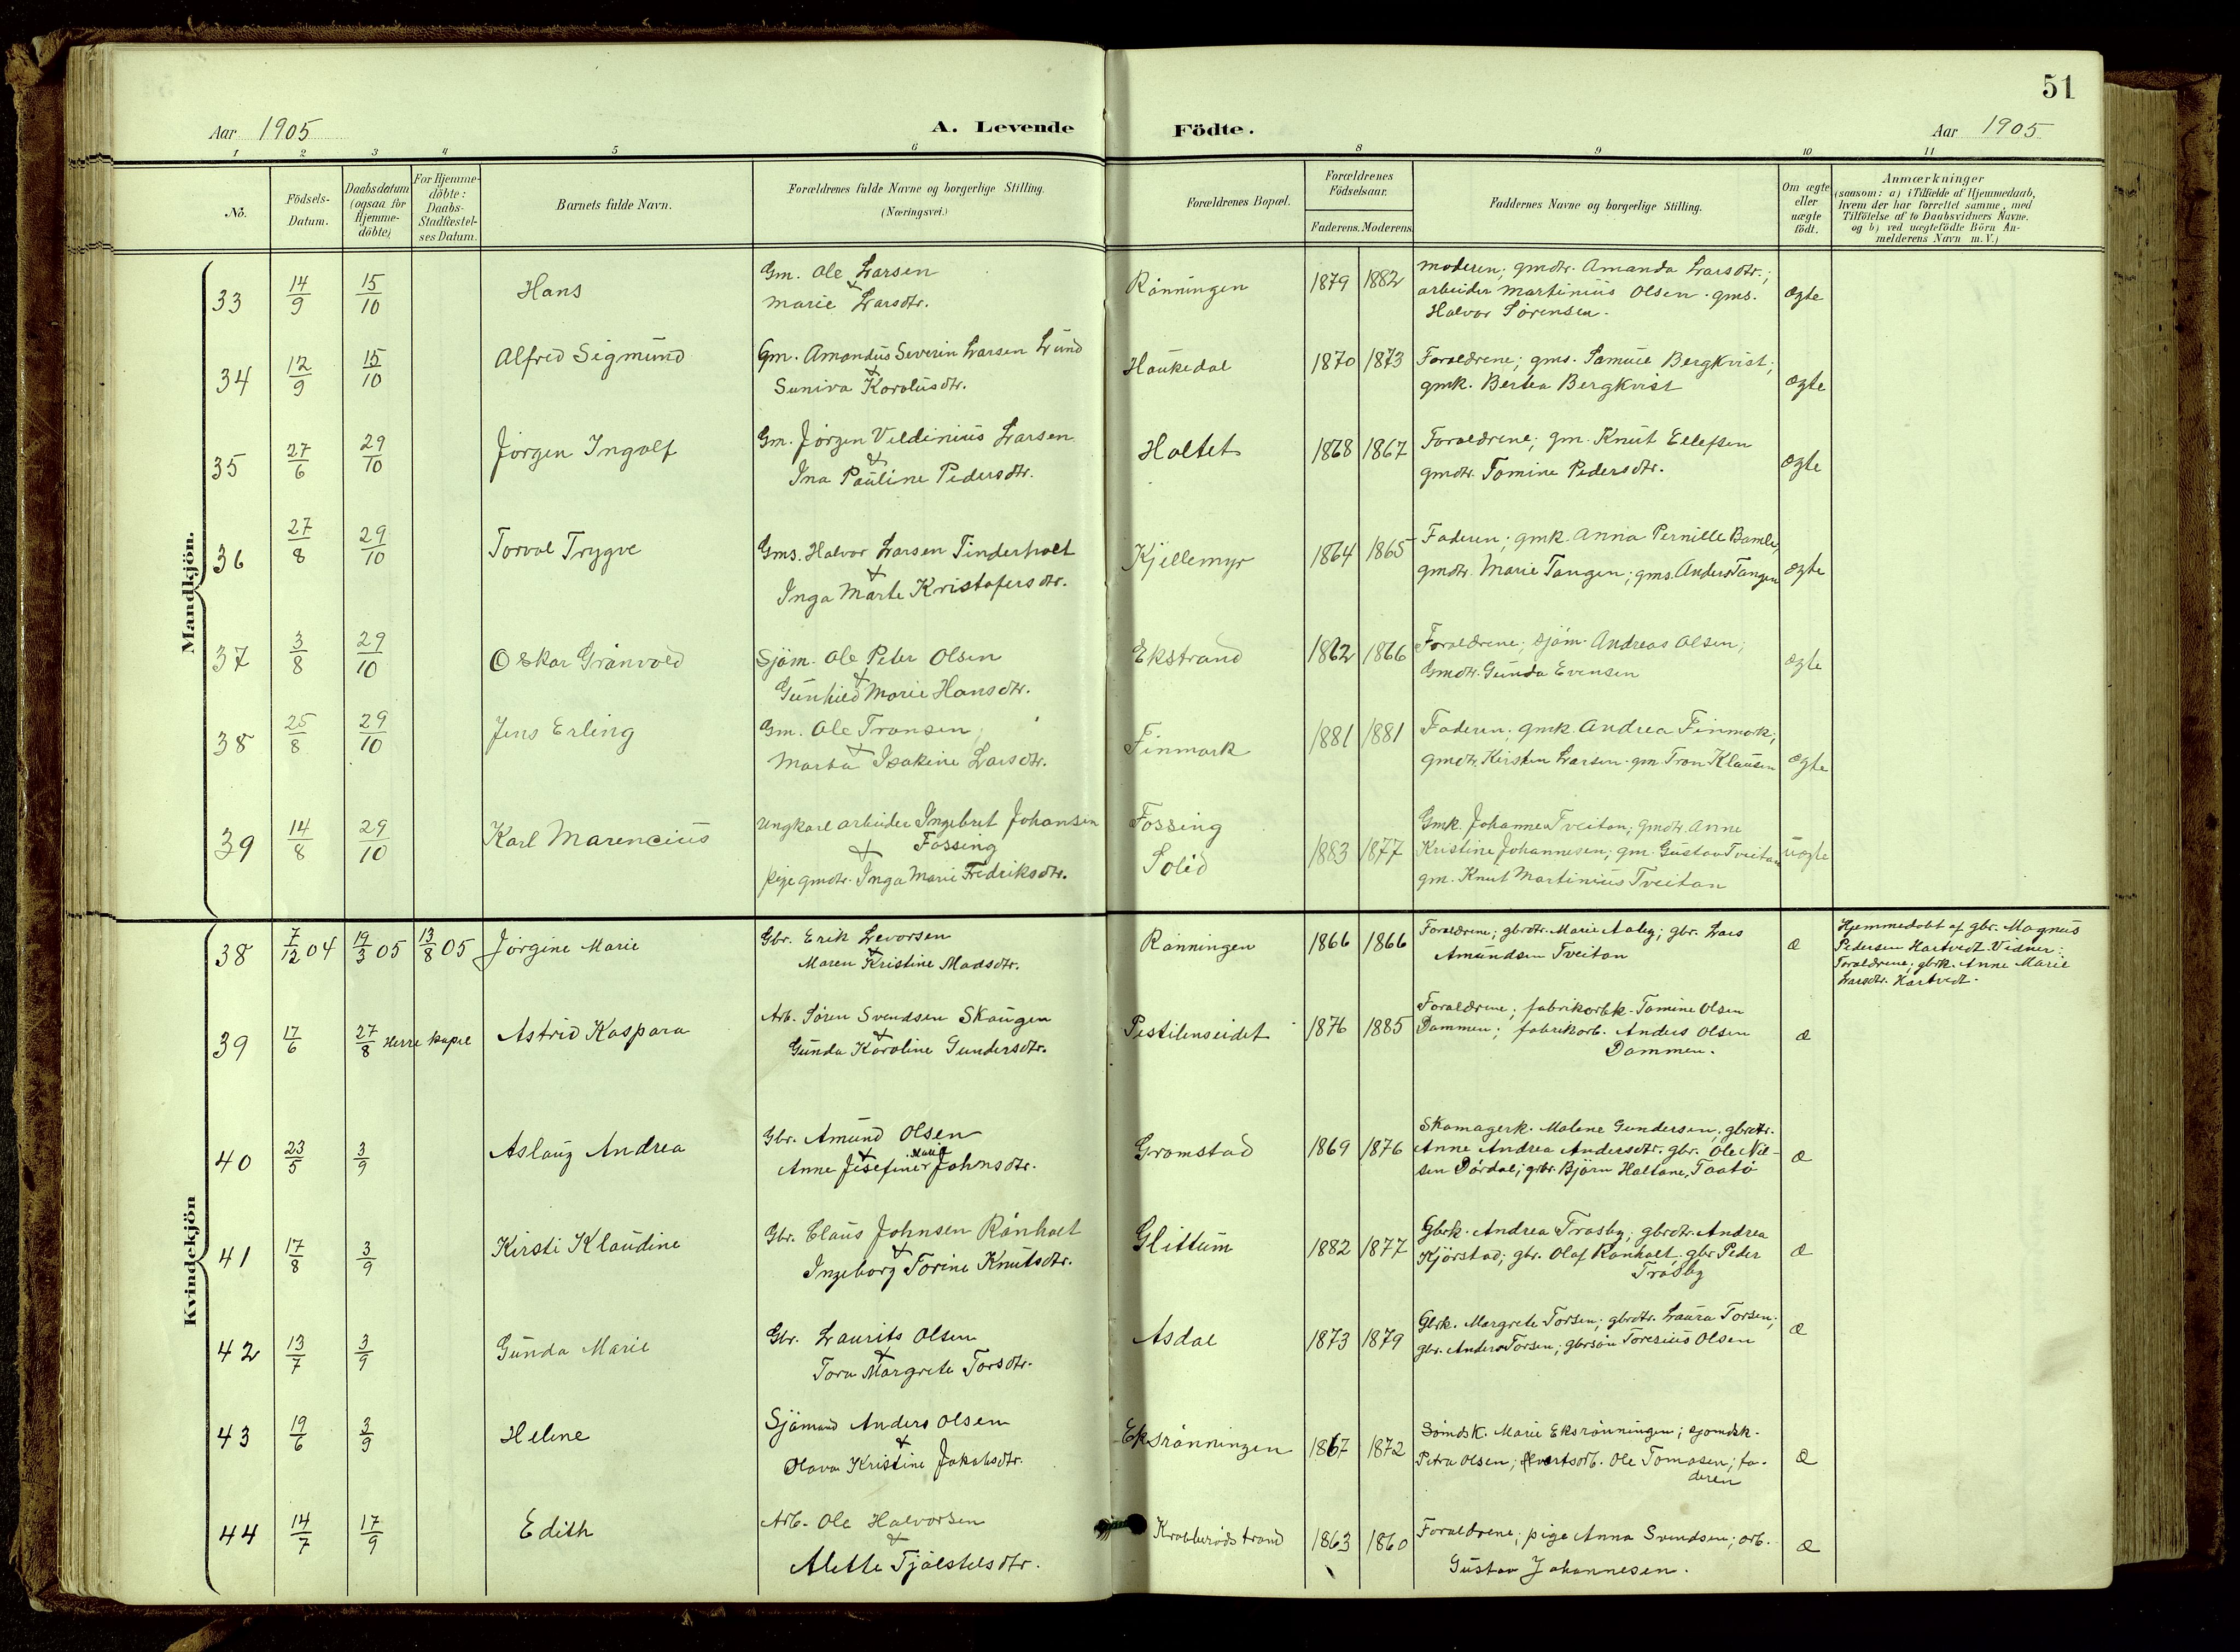 51
Aar 1905
A. Levende Födte.
Aar 1905
1 2 3 4 5 6 8 9 10 11
No.
Födsels-
Datum.
Daabsdatum
(ogsaa for
Hjemme-
döbte)
For Hjemme-
döbte:
Daabs-
Stadfæstel-
ses Datum.
Barnets fulde Navn.
Forældrenes fulde Navne og borgerlige Stilling.
(Næringsvei.)
Forældrenes Bopæl.
Forældrenes
Födselsaar.
Faderens. Moderens.
Faddernes Navne og borgerlige Stilling.
Om ægte
eller
uægte
födt.
Anmærkninger
(saasom: a) i Tilfælde af Hjemmedaab,
hvem der har forrettet samme, med
Tilföielse af to Daabsvidners Navne.
og b) ved uægtefödte Börn An-
melderens Navn m. V.)
Mandkjön.
33 14/9 15/10 Hans
Gm. Ole Larsen
&
Marie Larsdtr.
Rönningen 1879 1882
Moderen; gmdtr. Amanda Larsdtr.;
arbeider Martinius Olsen. gms.
Halvor Sörensen.
ægte
34 12/9 15/10 Alfred Sigmund
Gm. Amandus Severin Larsen Lund
&
Suniva Karolusdtr.
Haukedal 1870 1873
Forældrene; gms. Samuel Bergkvist;
gmk. Bertea Bergkvist
ægte
35 27/6 29/10 Jörgen Ingolf
Gm. Jörgen Veldinius Larsen
&
Ina Pauline Pedersdtr.
Holtet 1868 1867
Forældrene; gm. Knut Ellefsen
gmdtr. Tomine Pedersdtr.
ægte
36 27/8 29/10 Torval Trygve
Gms. Halvor Larsen Tinderholt
&
Inga Marte Kristofersdtr.
Kjellemyr 1864 1865
Faderen; gmk. Anna Pernille Bamle,
gmdtr. Marie Tangen; gms. Anders Tangen
ægte
37 3/8 29/10 Oskar Grönvold
Sjöm. Ole Peter Olsen
&
Gunhild Marie Hansdtr.
Ekstrand 1862 1866
Forældrene; sjöm. Andreas Olsen;
Gmdtr. Gunda Evensen
ægte
38 25/8 29/10 Jens Erling
Gm. Ole Transen
&
Marta Isakine Larsdtr.
Finmark 1881 1881
Faderen; gmk. Andrea Finmark;
gmdtr. Kirsten Larsen. gm Tron Klausen
ægte
39 14/8 29/10 Karl Marencius
Ungkarl arbeider Ingebret Johansen
Fossing
&
pige gmdtr. Inga Marie Fredriksdtr.
Fossing
Solid
1883 1877
Gmk. Johanne Tveitan; gmdtr. Anne
Kristine Johannesen; gm. Gustav Tveitan
gm. Knut Martinius Tveitan
uægte
Kvindekjön
38 7/12 04 19/3 05 13/8 05 Jörgine Marie
Gbr. Erik Levorsen
&
Maren Kristine Madsdtr.
Rönningen 1866 1866
Forældrene; gbrdtr. Marie Aaby; gbr. Lars
Amundsen Tveitan
æ
Hjemmedöbt af gbr. Magnus
Pedersen Hartvedt. Vidner:
Forældrene; gbrk. Anne Marie
Larsdtr. Hartvedt.
39 17/6 27/8 Herre kapel Astrid Kaspara
Arb. Sören Svendsen Skaugen
&
Gunda Karoline Gundersdtr.
Pestilenseidet 1876 1885
Forældrene; fabrikarbk. Tomine Olsen
Dammen; fabrikarb. Anders Olsen
Dammen.
æ
40 23/5 3/9 Aslaug Andrea
Gbr. Amund Olsen
&
Anne Josefine Marie Johnsdtr.
Gromstad 1869 1876
Skomagerk. Malene Gundersen; gbrdtr.
Anne Andrea Andersdtr. gbr. Ole Nil-
sen Dördal; gbr. Björn Haltane, Taatö
æ
41 17/8 3/9 Kirsti Klaudine
Gbr. Claus Johnsen Rönholt
&
Ingeborg Torine Knutsdtr.
Glittum 1882 1877
Gbrk. Andrea Trosby; gbrdtr. Andrea
Kjörstad; gbr. Olaf Rönholt; gbr Peder
Trosby
æ
42 13/7 3/9 Gunda Marie
Gbr. Laurits Olsen
&
Tora Margrete Torsdtr.
Asdal 1873 1879
Gbrk. Margrete Torsen; gbrdtr. Laura Torsen;
gbr. Anders Torsen; gbrsön Toresius Olsen
æ
43 19/6 3/9 Helene
Sjömand Anders Olsen
&
Olava Kristine Jakobsdtr.
Eksrönningen 1867 1872
Sömdsk. Marie Eksrönningen; sjömdsk.
Petra Olsen; Ole Tomasen; fa-
deren
æ
44 14/7 17/9 Edith
Arb. Ole Halvorsen
&
Alette Tjölstelsdtr.
Krabberödstrand 1863 1860
Forældrene; pige Anna Svendsen; arb.
Gustav Johannesen.
æ